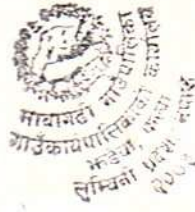 माथागढी गाउँपालिका
गाउँकार्यपालिकाको कार्यालय
पाल्पा
लुम्बिनी प्रदेश, नेपाल